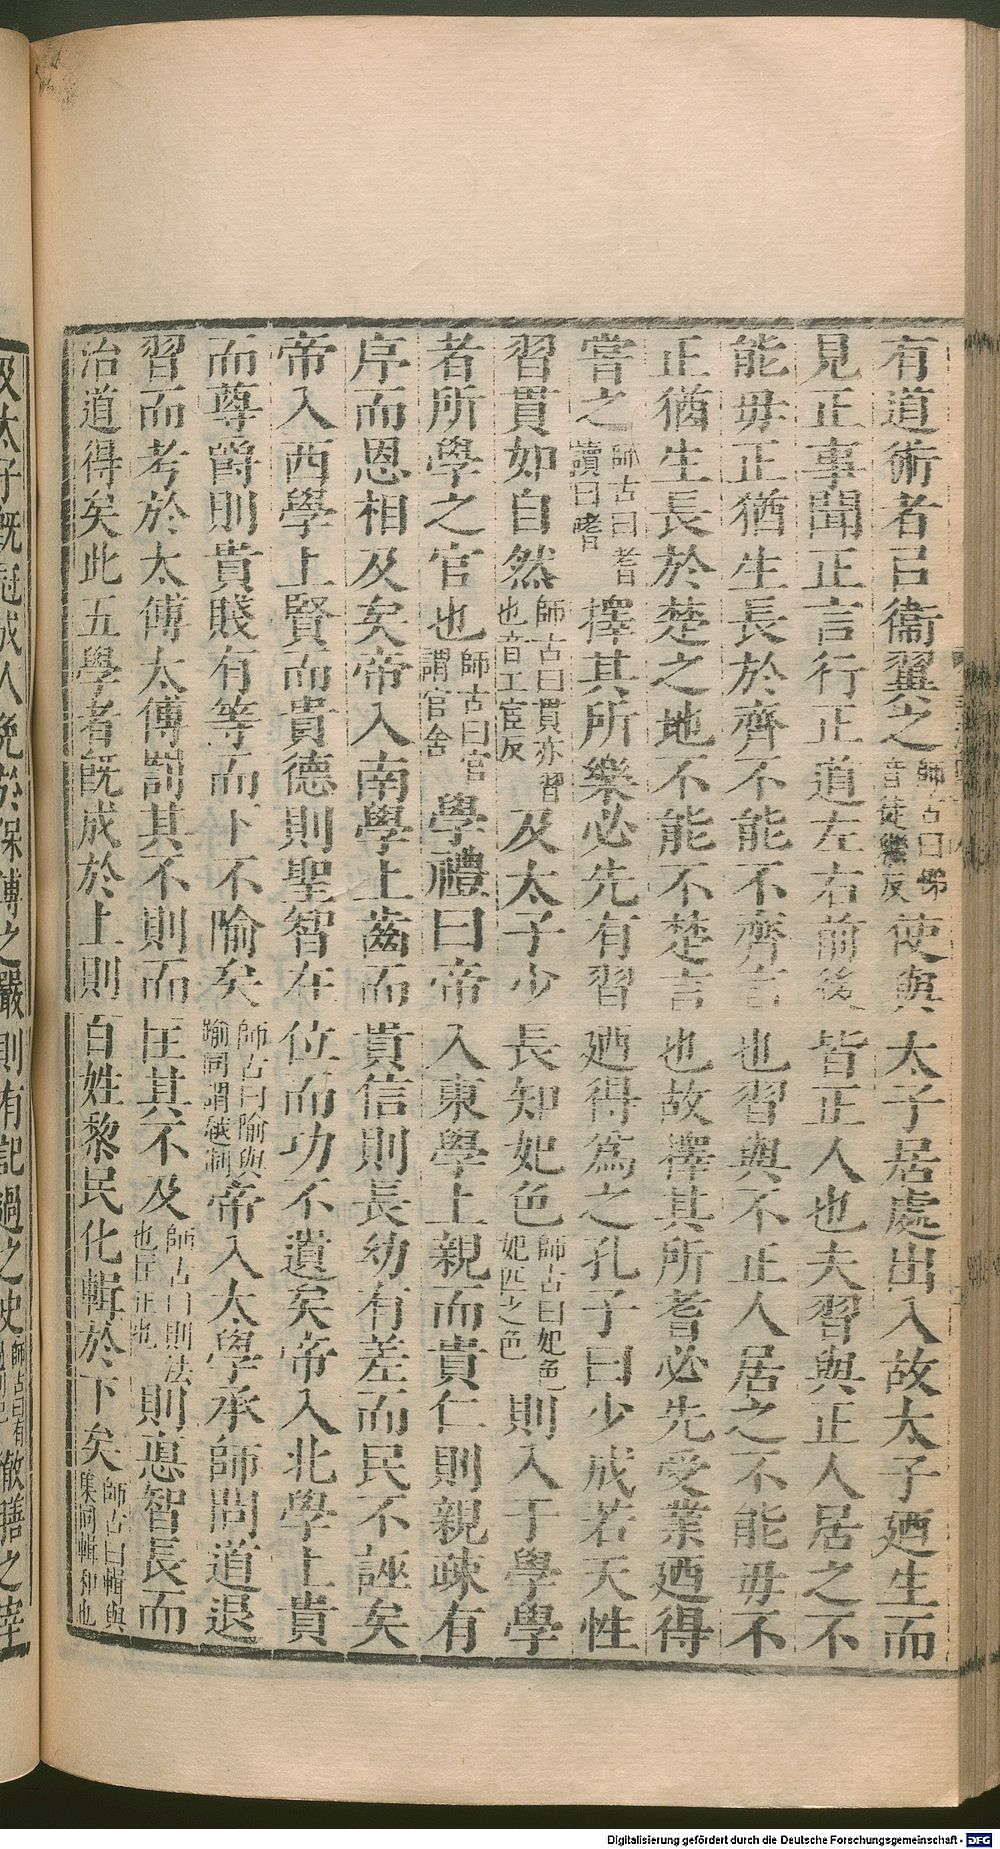 有道術者㠯衞翼之師古曰悌音徒繫反使與太子居處出入故太子廼生而
見正事聞正言行正道左右前後皆正人也夫習與正人居之不
能毋正猶生長於齊不能不齊言也習與不正人居之不能毋不
正猶生長於楚之地不能不楚言也故擇其所耆必先受業廼得
嘗之師古曰耆讀曰嗜擇其所樂必先有習廼得爲之孔子曰少成若天性
習貫如自然師古曰貫亦習也音工宦反及太子少長知妃色師古曰妃色妃匹之色則入于學學
者所學之官也師古曰官謂官舍學禮曰帝入東學上親而貴仁則親疎有
序而恩相及矣帝入南學上齒而貴信則長幼有差而民不誣矣
帝入西學上賢而貴德則聖智在位而功不遺矣帝入北學上貴
而尊爵則貴賤有等而下不隃矣師古曰隃與踰同謂越制帝入太學承師問道退
習而考於太傅太傅罰其不則而匡其不及師古曰則法也匡正也則悳智長而
治道得矣此五學者旣成於上則百姓黎民化輯於下矣師古曰輯與集同輯和也
及太子旣冠成人免於保傅之嚴則有記過之史師古曰有徹膳之宰
Digitalisierung gefördert durch die Deutsche Forschungsgemeinschaft - DFG